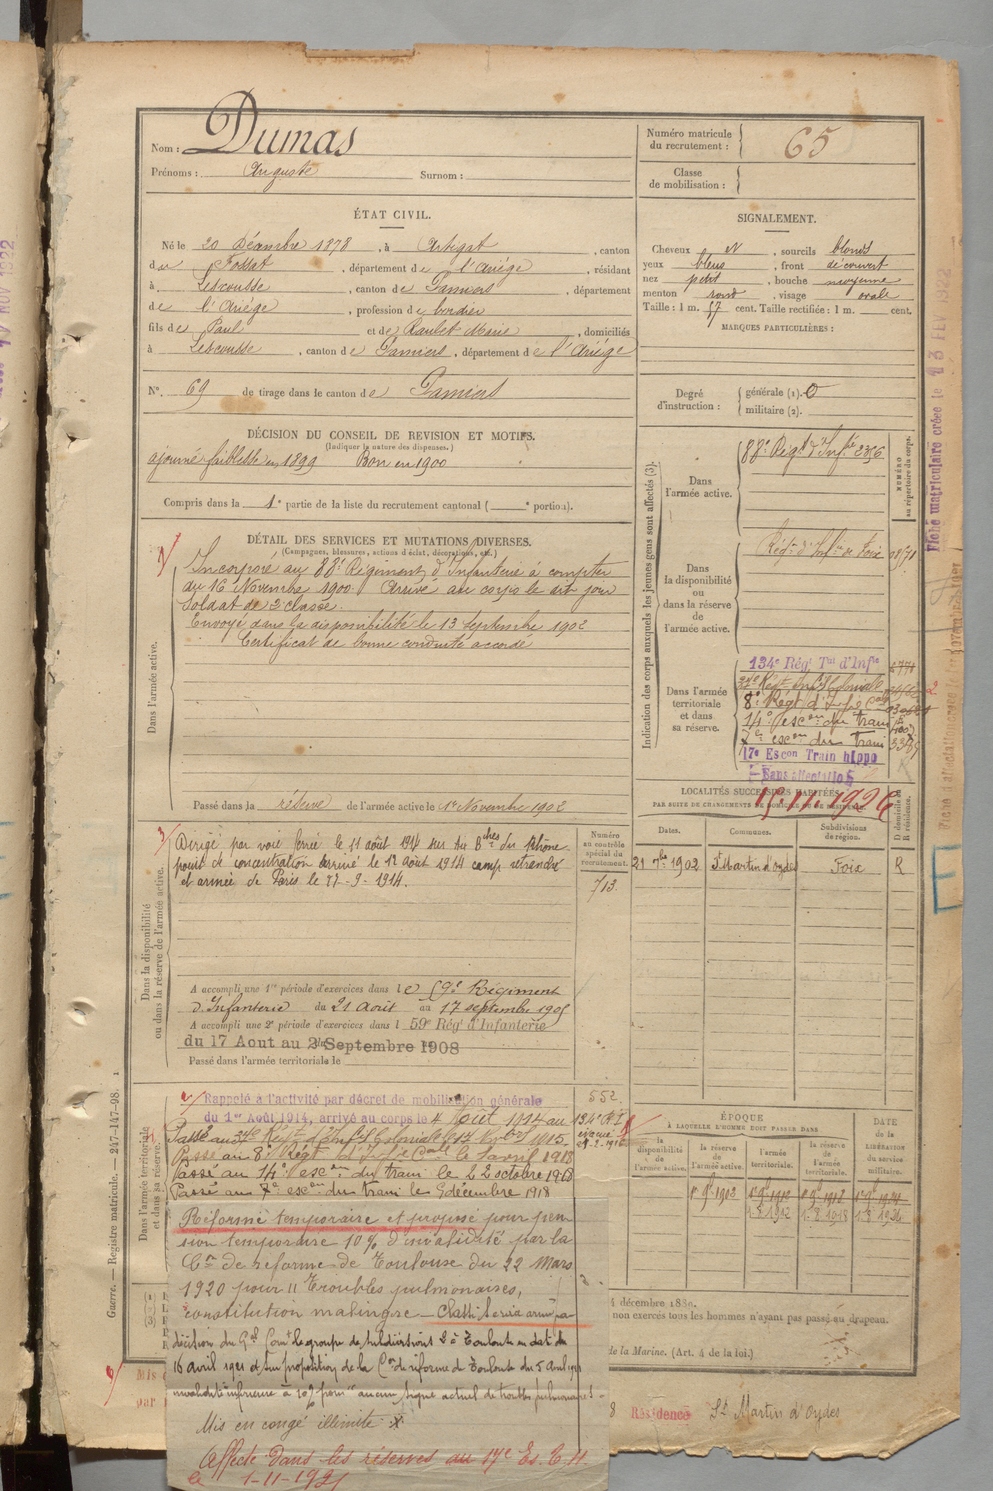 Nom : Dumas
Prénoms : Auguste Surnom :
Numéro matricule du recrutement : 65
Classe de mobilisation :
ÉTAT CIVIL.
Né le 20 Décembre 1878, à Artigat, canton
du Fossat, département de l'Ariège, résidant
à Lescousse, canton de Pamiers, département
de l'Ariège, profession de bordier
fils de Paul et de Raulet Marie, domiciliés
à Lescousse, canton de Pamiers, département de l'Ariège
N°. 69 de tirage dans le canton de Pamiers
SIGNALEMENT.
Cheveux N, sourcils blonds
yeux bleus, front découvert
nez petit, bouche moyenne
menton rond, visage ovale
Taille : 1 m. 57 cent. Taille rectifiée : 1 m. cent.
MARQUES PARTICULIÈRES :
Degré d'instruction : générale (1). 0
militaire (2).
DÉCISION DU CONSEIL DE REVISION ET MOTIFS.
(Indiquer la nature des dispenses.)
ajourné faiblesse en 1899 Bon en 1900
Compris dans la 1e partie de la liste du recrutement cantonal ( e portion).
DÉTAIL DES SERVICES ET MUTATIONS DIVERSES.
(Campagnes, blessures, actions d'éclat, décorations, etc.)
Dans l'armée active.
Incorporé au 88e Régiment d'Infanterie à compter
du 16 Novembre 1900. Arrivé au corps le dit jour
Soldat de 2e classe.
Envoyé dans la disponibilité le 13 septembre 1902
Certificat de bonne conduite accordé
Passé dans la réserve de l'armée active le 1er Novembre 1902
Indication des corps auxquels les jeunes gens sont affectés (3).
NUMÉRO au répertoire du corps.
Dans l'armée active.
88e Régt d'Infie 3356
Dans la disponibilité ou dans la réserve de l'armée active.
Régt d'Infie de Foix
Dans l'armée territoriale et dans sa réserve.
134e Régt Tal d'Infie
8e Régt d'Infie Cale
14e escon du train
7e escon du train
17e Escon Train hippo
Sans affectation
1.11.1926
LOCALITÉS SUCCESSIVES HABITÉES
PAR SUITE DE CHANGEMENTS DE DOMICILE OU DE RÉSIDENCE.
Dates. Communes. Subdivisions de région. D domicile ou R résidence.
21 7bre 1902 St Martin d'Oydes Foix R
Dans la disponibilité ou dans la réserve de l'armée active.
Dirigé par voie ferrée le 11 août 1914 sur du Bches du Rhône
point de concentration arrivé le 12 août 1914 camp retranché
et armée de Paris le 11-9-1914.
Numéro au contrôle spécial du recrutement.
713
A accompli une 1re période d'exercices dans le 59e Régiment
d'Infanterie du 21 Août au 17 septembre 1905
A accompli une 2e période d'exercices dans l 59e Régt d'Infanterie
du 17 Aout au 2 Septembre 1908
Passé dans l'armée territoriale le
Dans l'armée territoriale et dans sa réserve.
Rappelé à l'activité par décret de mobilisation générale
du 1er Août 1914, arrivé au corps le 4 Août 1914 au 134e R I
552
Passé au 8e Régt d'Infie Cale le 1 avril 1918
Passé au 14e escon du train le 22 octobre 1918
Passé au 7e escon du train le 9 décembre 1918
Réformé temporaire et proposé pour pen
sion temporaire 10% d'invalidité par la
Con de réforme de Toulouse du 22 Mars
1920 pour " Troubles pulmonaires,
constitution malingre
décision du Gal Comt le groupe de subdivisions à Toulouse en date du
16 avril 1921 et sur proposition de la Con de réforme de Toulouse du 5 Avril 1921
invalidité inférieure à 10% pour "aucun signe actuel de troubles pulmonaires".
Mis en congé illimité
Affecté dans les réserves au 17e Es. T. H
le 1-11-1921
ÉPOQUE
À LAQUELLE L'HOMME DOIT PASSER DANS
la disponibilité de l'armée active. la réserve de l'armée active. l'armée territoriale. la réserve de l'armée territoriale. DATE de la LIBÉRATION du service militaire.
1er 9bre 1902 1er 9bre 1912 1er 9bre 1918 1er 9bre 1924
1.8.1912 1.8.1918 1.8.1926
non exercés tous les hommes n'ayant pas passé au drapeau.
de la Marine. (Art. 4 de la loi.)
Résidence St Martin d'Oydes
Guerre. — Registre matricule. — 247-147-98.
Fiche matriculaire créée le 13 FEV 1922